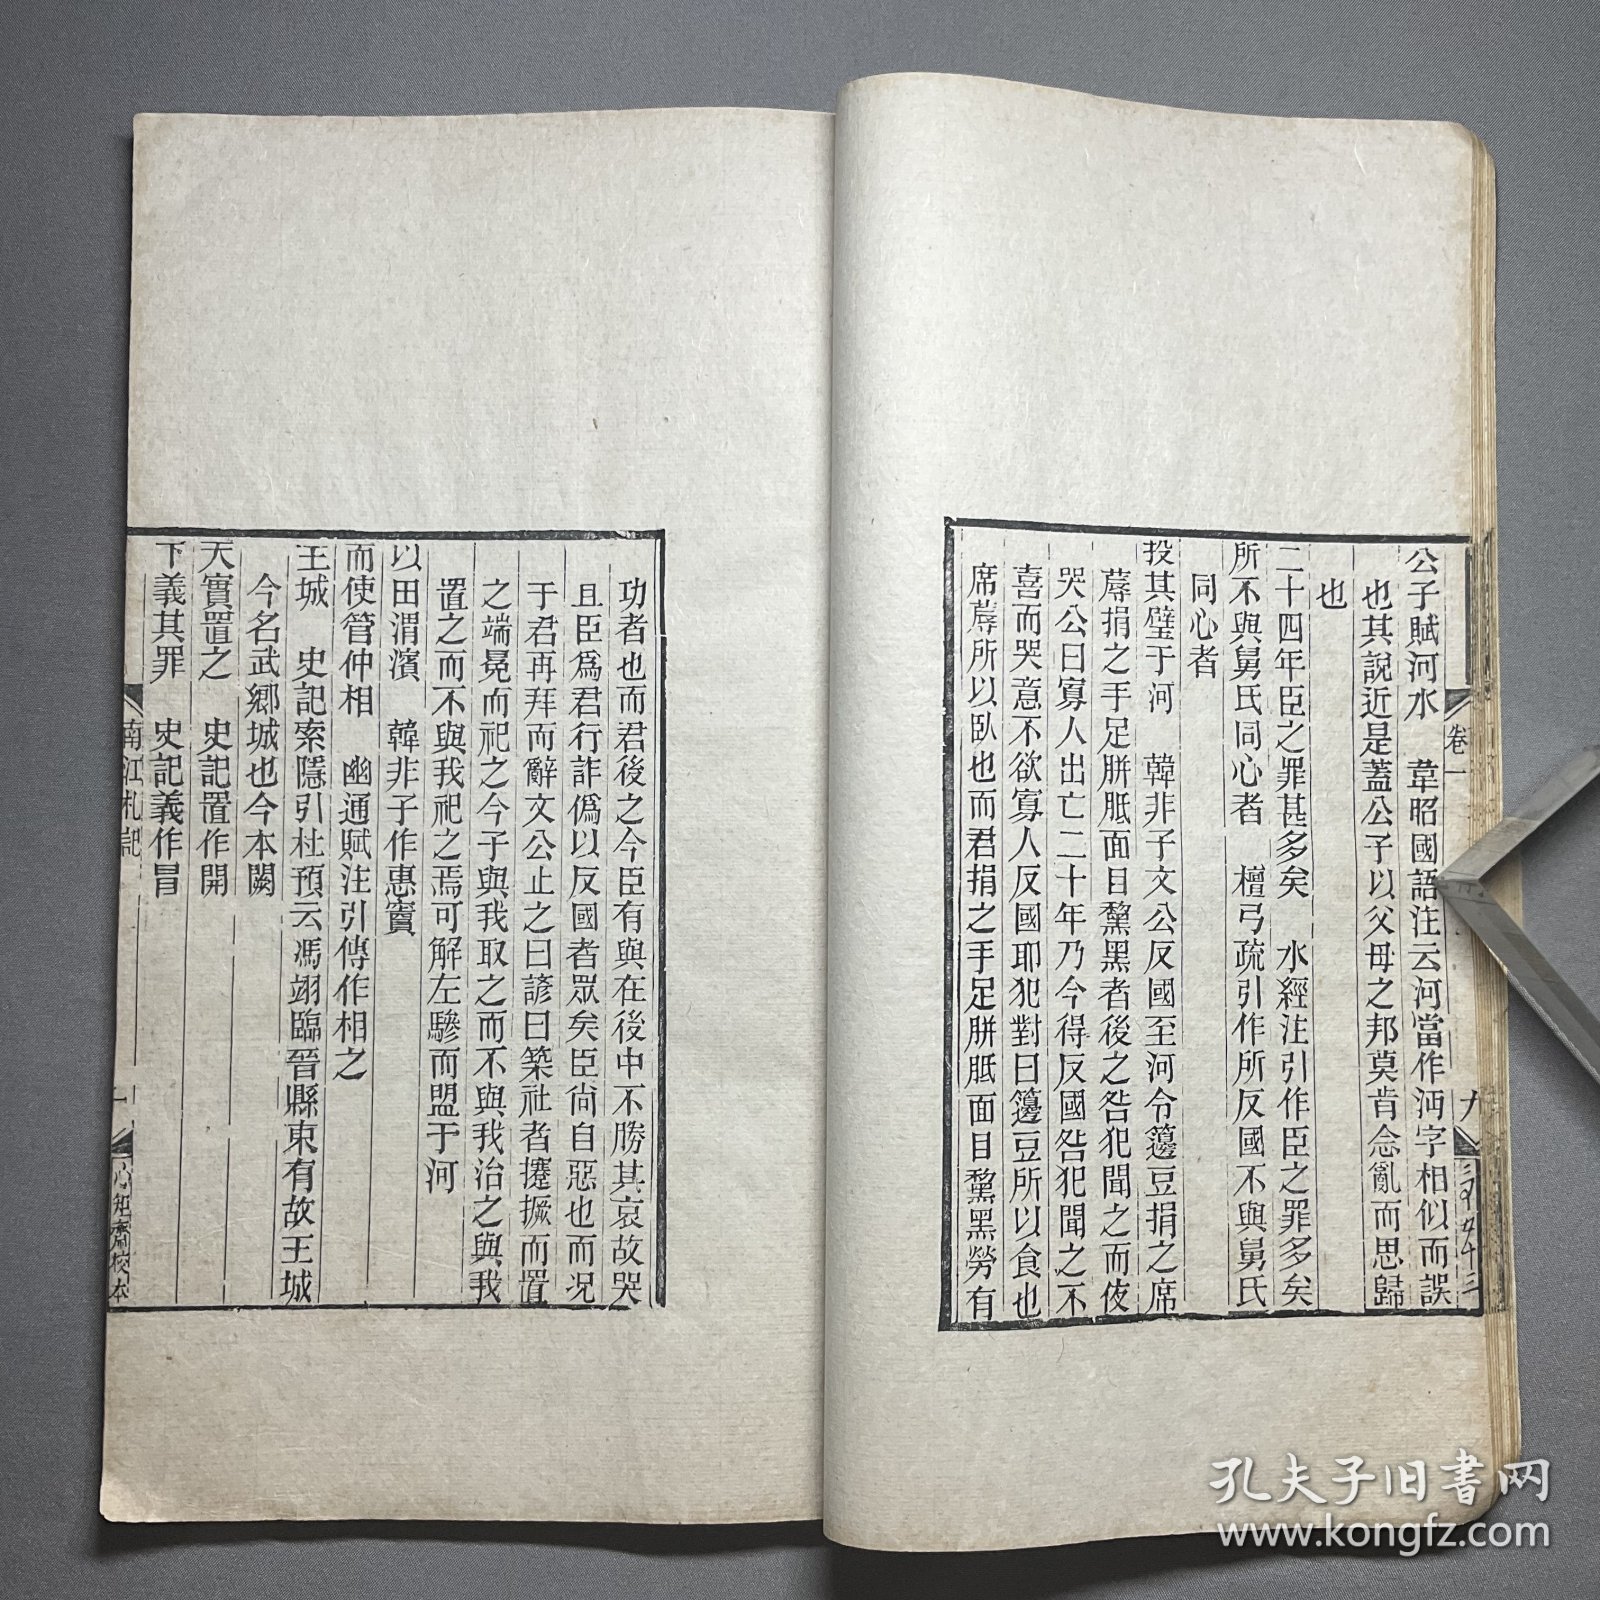 公子賦河水　韋昭國語注云河當作沔字相似而誤
也其說近是蓋公子以父母之邦莫肯念亂而思歸
也
二十四年臣之罪甚多矣　水經注引作臣之罪多矣
所不與舅氏同心者　檀弓疏引作所反國不與舅氏
同心者
投其璧于河　韓非子文公反國至河令籩豆捐之席
蓐捐之手足胼胝面目黧黑者後之咎犯聞之而夜
哭公曰寡人出亡二十年乃今得反國咎犯聞之不
喜而哭意不欲寡人反國耶犯對曰籩豆所以食也
席蓐所以臥也而君捐之手足胼胝面目黧黑勞有
卷一
九
功者也而君後之今臣有與在後中不勝其哀故哭
且臣爲君行詐僞以反國者眾矣臣尚自惡也而况
于君再拜而辭文公止之曰諺曰築社者攓撅而置
之端冕而祀之今子與我取之而不與我治之與我
置之而不與我祀之焉可解左驂而盟于河
以田渭濱　韓非子作惠竇
而使管仲相　幽通賦注引傳作相之
王城　史記索隱引杜預云馮翊臨晉縣東有故王城
今名武鄉城也今本闕
天實置之　史記置作開
下義其罪　史記義作冒
南江札記
心矩齋校本
孔夫子旧书网
www.kongfz.com